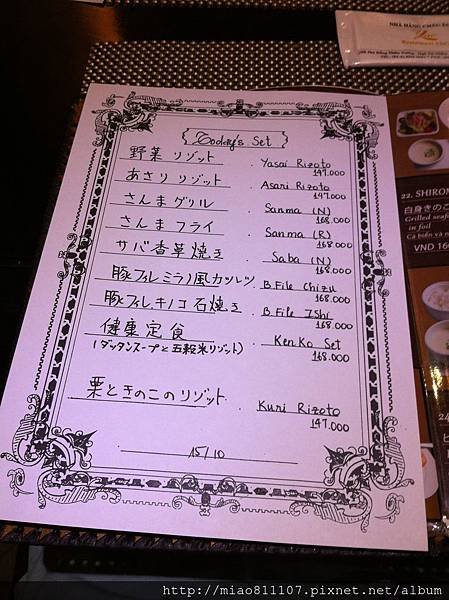 NHÀ HÀNG
Today's Set
野菜 リゾット
Yasai Rizoto
147.000
あさり リゾット
Asari Rizoto
147.000
さんま グリル
Sanma (N)
168.000
さんま フライ
Sanma (R)
168.000
サバ香草焼き
Saba (N)
168.000
豚フィレミラノ風カツレツ
B.File Chizu
168.000
豚フィレキノコ石焼き
B.File IShi
168.000
健康定食
(ダッタンスープと五穀米リゾット)
KenKo Set
168.000
栗ときのこのリゾット
Kuri Rizoto
147.000
15/10
22. SHIROM
白身きのこ
Grilled seaf
in foil
Cá biển và n
VND 16
24
http://miao811107.pixnet.net/album